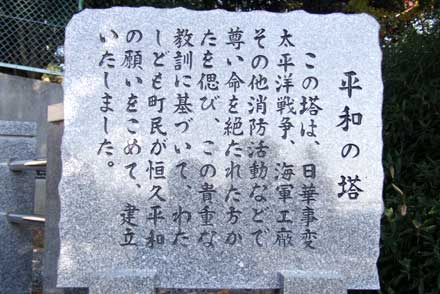 平和の塔
この塔は、日華事変
太平洋戦争、海軍工廠
その他消防活動などで
尊い命を絶たれた方か
たを偲び、この貴重な
教訓に基づいて、わた
しども町民が恒久平和
の願いをこめて、建立
いたしました。